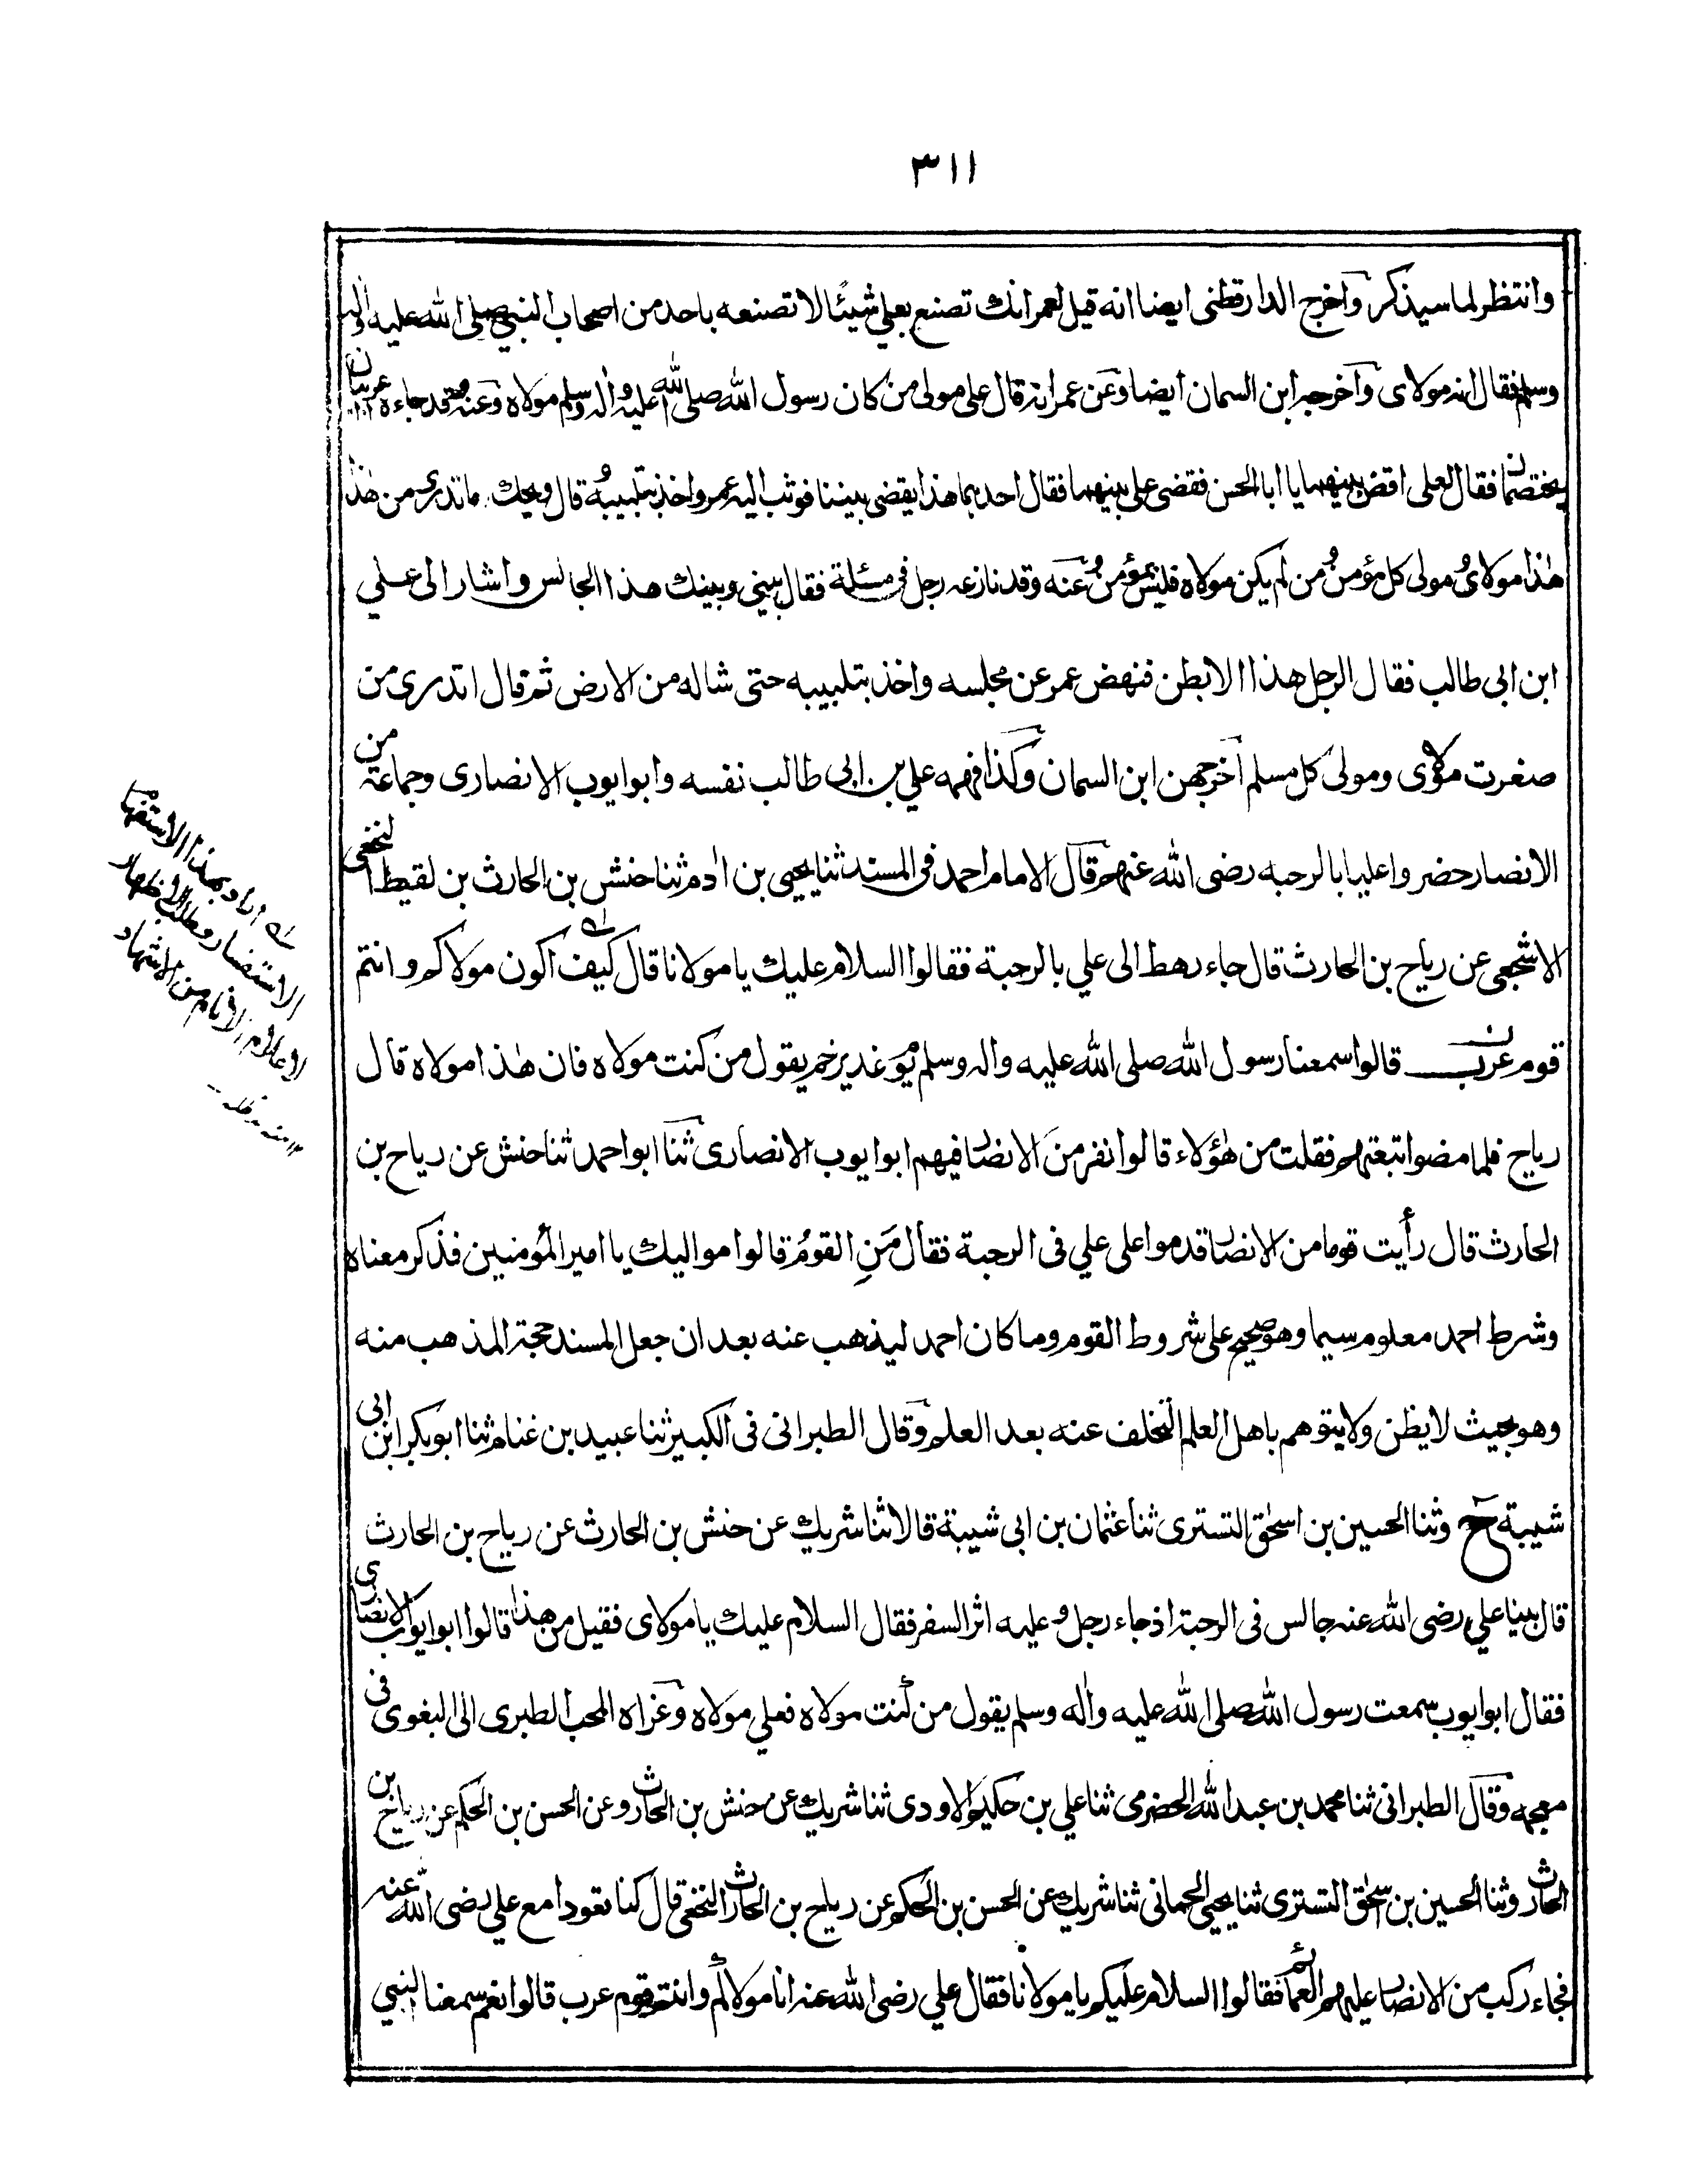 ٣١١
وانتظر لما سيذكر واخرج الدارقطنى ايضا انه قيل لعمر انك تصنع بعلي شيئا لا تصنعه باحد من اصحاب النبي صلى الله عليه واله
وسلم فقال انه مولاى واخرجه ابن السمان ايضا وعن عمر انه قال على مولى من كان رسول الله صلى الله عليه واله وسلم مولاه وعنه وقد جاءه عربيان
يختصمان فقال لعلى اقض بينهما يا ابا الحسن فقضى على بينهما فقال احدهما هذا يقضى بيننا فوثب اليه عمر واخذ بتلبيبه قال ويحك ما تدرى من هذا
هذا مولاى ومولى كل مؤمن ومن لم يكن مولاه فليس بمؤمن وعنه وقد نازعه رجل فى مسئلة فقال بينى وبينك هذا الجالس واشار الى علي
ابن ابى طالب فقال الرجل هذا الابطن فنهض عمر عن مجلسه واخذ بتلبيبه حتى شاله من الارض ثم قال اتدرى من
صغرت مولاى ومولى كل مسلم اخرجهن ابن السمان وكذا فهمه علي بن ابى طالب نفسه وابو ايوب الانصارى وجماعة من
الانصار حضروا عليا بالرحبه رضى الله عنهم قال الامام احمد فى المسند ثنا يحيى بن ادم ثنا حنش بن الحارث بن لقيط النخعى
الاشجعى عن رياح بن الحارث قال جاء رهط الى علي بالرحبة فقالوا السلام عليك يا مولانا قال كيف اكون مولاكم وانتم
قوم عرب قالوا سمعنا رسول الله صلى الله عليه واله وسلم يوم غدير خم يقول من كنت مولاه فان هذا مولاه قال
رياح فلما مضوا تبعتهم فقلت من هؤلاء قالوا نفر من الانصار فيهم ابو ايوب الانصارى ثنا ابو احمد ثنا حنش عن رياح بن
الحارث قال رأيت قوما من الانصار قدموا على علي فى الرحبة فقال من القوم قالوا مواليك يا امير المؤمنين فذكر معناه
وشرط احمد معلوم سيما وهو صحيح على شروط القوم وما كان احمد ليذهب عنه بعد ان جعل المسند حجة المذهب منه
وهو بحيث لا يظن ولا يتوهم باهل العلم التخلف عنه بعد العلم وقال الطبرانى فى الكبير ثنا عبيد بن غنام ثنا ابو بكر ابن ابى
شيبة ح وثنا الحسين بن اسحق التسترى ثنا عثمان بن ابى شيبة قالا ثنا شريك عن حنش بن الحارث عن رياح بن الحارث
قال بينا علي رضى الله عنه جالس فى الرحبة اذ جاء رجل وعليه اثر السفر فقال السلام عليك يا مولاى فقيل من هذا قالوا ابو ايوب الانصارى
فقال ابو ايوب سمعت رسول الله صلى الله عليه واله وسلم يقول من كنت مولاه فعلي مولاه وعزاه المحب الطبرى الى البغوى فى
معجمه وقال الطبرانى ثنا محمد بن عبد الله الحضرمى ثنا علي بن حكيم الاودى ثنا شريك عن حنش بن الحارث وعن الحسن بن الحكم عن رياح بن
الحارث وثنا الحسين بن اسحق التسترى ثنا يحيى الحمانى ثنا شريك عن الحسن بن الحكم عن رياح بن الحارث النخعى قال كنا قعودا مع علي رضى الله عنه
فجاء ركب من الانصار عليهم العمائم فقالوا السلام عليكم يا مولانا فقال علي رضى الله عنه انا مولاكم وانتم قوم عرب قالوا نعم سمعنا النبي
له اراد بهذا الاستفهام
الاستفسار وطلب الاظهار
لاعلام الانام من الاشهاد
١٢ منه مد ظله